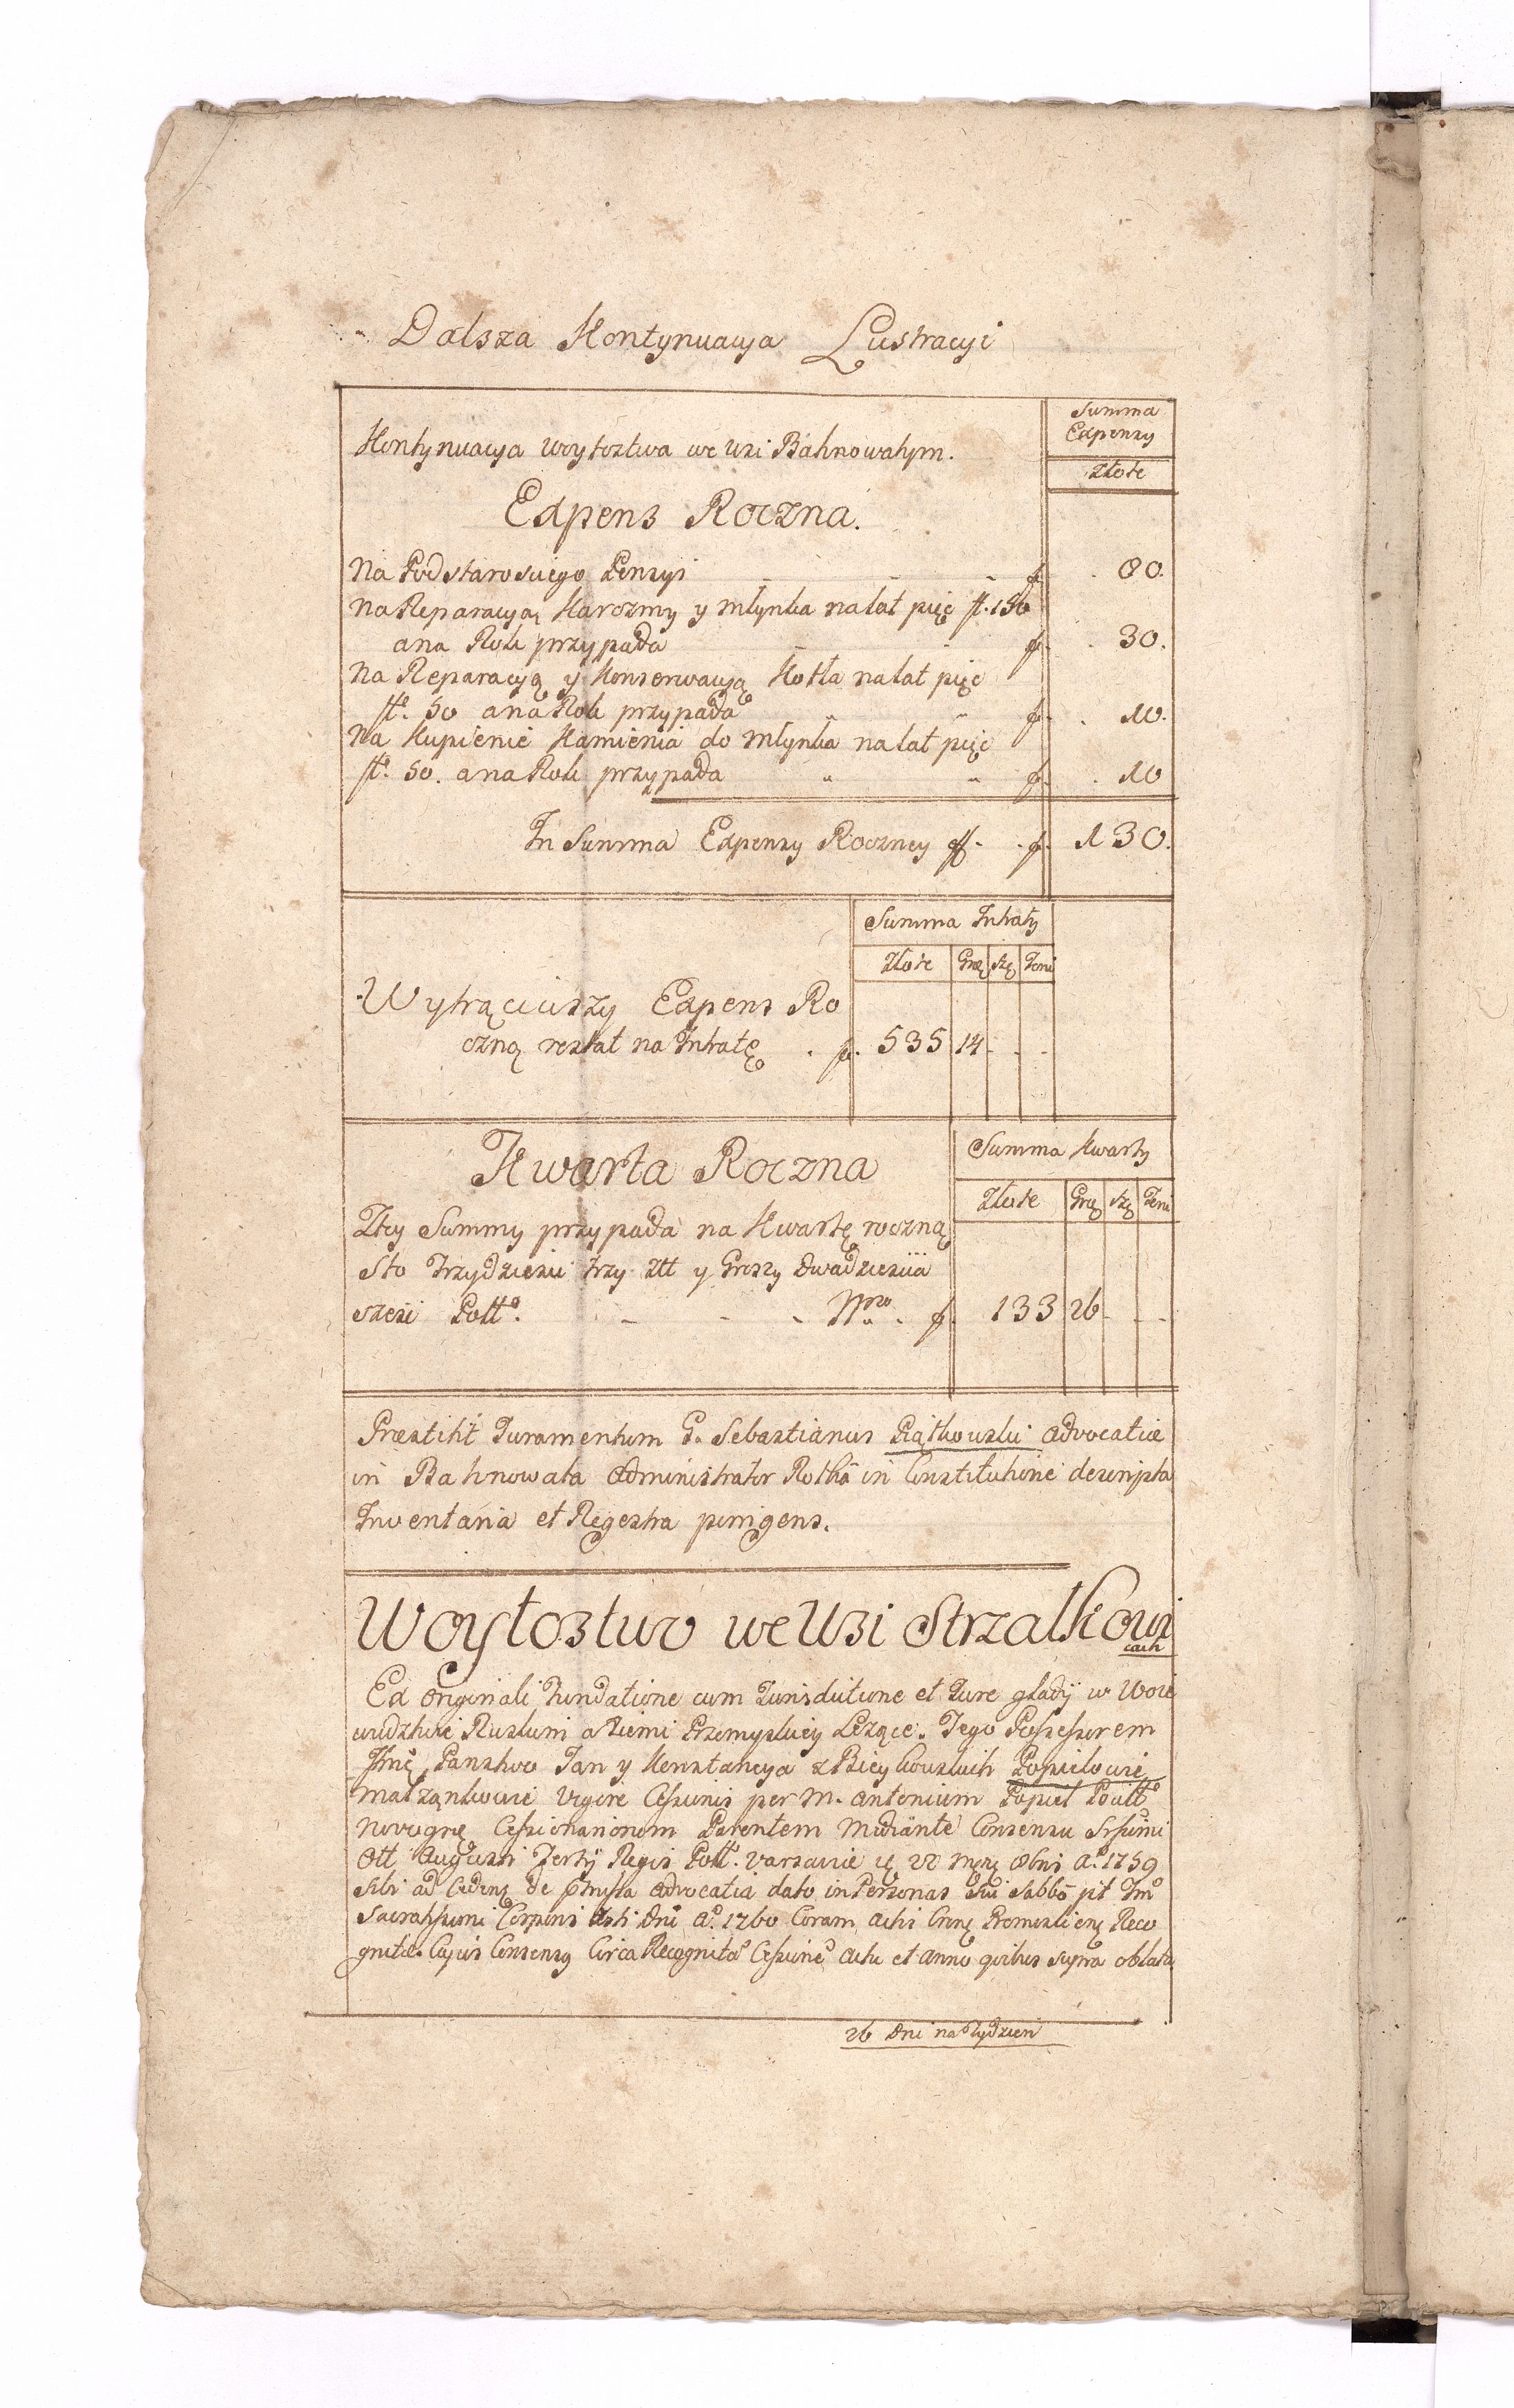 Dalsza Kontynuacya Lustracyi
Summa
Expensy
Złote
Kontynuacya Woytostwa we Wsi Bahnowatym.
Expens Roczna.
Na Podstarosciego Pensyi f. 80.
Na Reparacyą Karczmy y Młynka na lat pięć fl. 150
a na Rok przypada f. 30.
Na Reparacyą y Konserwacyą Kotła na lat pięc
fl. 50 a na Rok przypada f. 10.
Na Kupienie Kamienia do Młynka na lat pięc
fl. 50. a na Rok przypada f. 10
In Summa Expensy Roczney f. 130.
Summa Intraty
Złote Gro Szę Deni
Wytrąciwszy Expens Ro
czną restat na Intratę f. 535 14
Kwarta Roczna
Summa Kwarty
Złote Gro Szę Deni
Ztey Summy przypada na Kwartę roczną
Sto Trzydziesci trzy Złł y Groszy dwadziescia
szesc Poll. Nro f. 133 26
Præstitit Juramentum G. Sebastianus Piątkowski Advocatiæ
in Bahnowata Administrator Rotha in Constitutione descripta
Inventaria et Regestra porrigens.
Woytostwo we Wsi Strzałkowi
cach
Ex Originali Fundatione cum Jurisdictione et Jure gladÿ w Woie
wudztwie Ruskim a Ziemi Przemyskiey Leżące. Tego Possessorem
Jmę Panstwo Jan y Konstancya z Bieykowskich Popielowie
Małżonkowie Vigore Cessionis per M. Antonium Popiel
Cessionariorum Parentem Mediante Consensu
Augusti Tertÿ Regis Poll. Varsaviæ 22 1759
Sibi ad Cedend de Advocatia dato in Personas Sui
Sacratissimi Corporis Xsti Dni A. 1760 Coram Actis Premislien Reco
gnitæ. Cujus Consensus Circa Recognita Cessione Actu et Anno quibus supra oblata
26 Dni na Tydzien